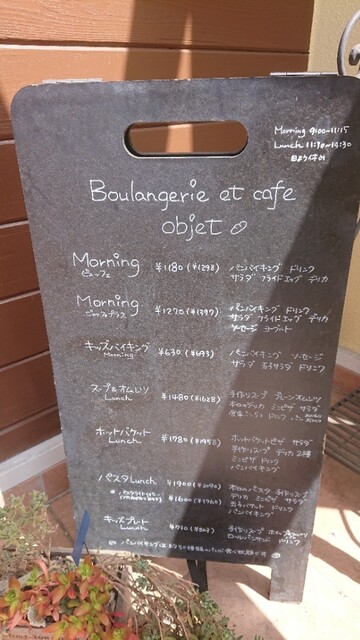 Morning 9:00~11:15
Lunch 11:30~14:30
Boulangerie et cafe
objet
Morning ¥1180 (¥1298) パンバイキング ドリンク
ビュッフェ サラダ フライドエッグ デリカ
Morning ¥1270 (¥1397) パンバイキング ドリンク
サラダ フライドエッグ デリカ
ソーセージ ヨーグルト
キッズバイキング ¥630 (¥693) パンバイキング ソーセージ
Morning サラダ ドリンク
スープ&オムレツ ¥1480 (¥1628) 手作りスープ プレーンオムレツ
Lunch デリカ ミニピザ サラダ
ホットバケット ¥1780 (¥1958) ホットバケットピザ サラダ
Lunch 手作りスープ デリカ2種
ミニピザ ドリンク
パンバイキング
パスタLunch ¥1900 (¥2090) 本日のパスタ 手作りスープ
¥1600 (¥1760) デリカ ミニピザ サラダ
ドリンク
パンバイキング
キッズプレート ¥730 (¥803) 手作りスープ
Lunch ロールパンサンド ドリンク